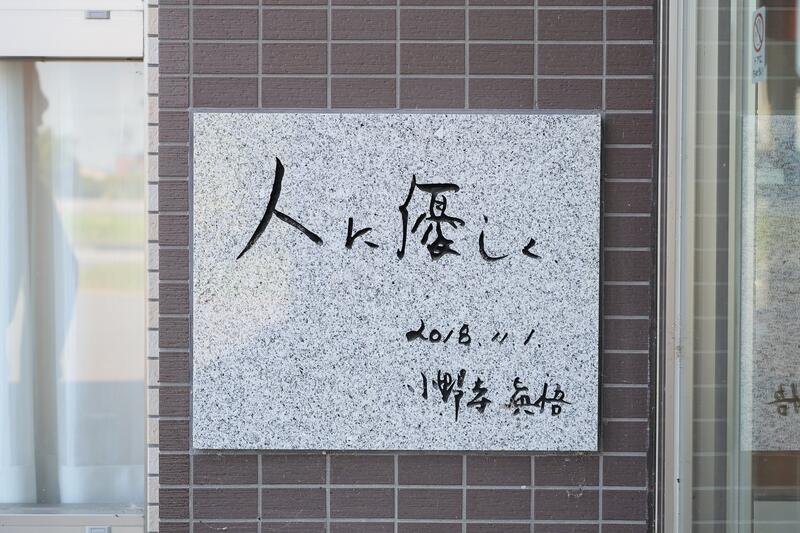 人に優しく
2018.11.1
小野寺 眞悟